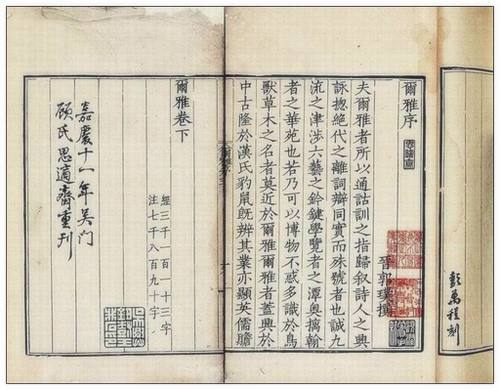 彭萬程刻
爾雅序
晉郭璞撰
夫爾雅者所以通詁訓之指歸叙詩人之興
詠摠絕代之離詞辯同實而殊號者也誠九
流之津涉六藝之鈐鍵學覽者之潭奧摛翰
者之華苑也若乃可以博物不惑多識於鳥
獸草木之名者莫近於爾雅爾雅者蓋興於
中古隆於漢氏豹鼠既辨其業亦顯英儒贍
爾雅卷下
經三千一百一十三字
注七千八百九十字
嘉慶十一年吳門
顧氏思適齋重刊